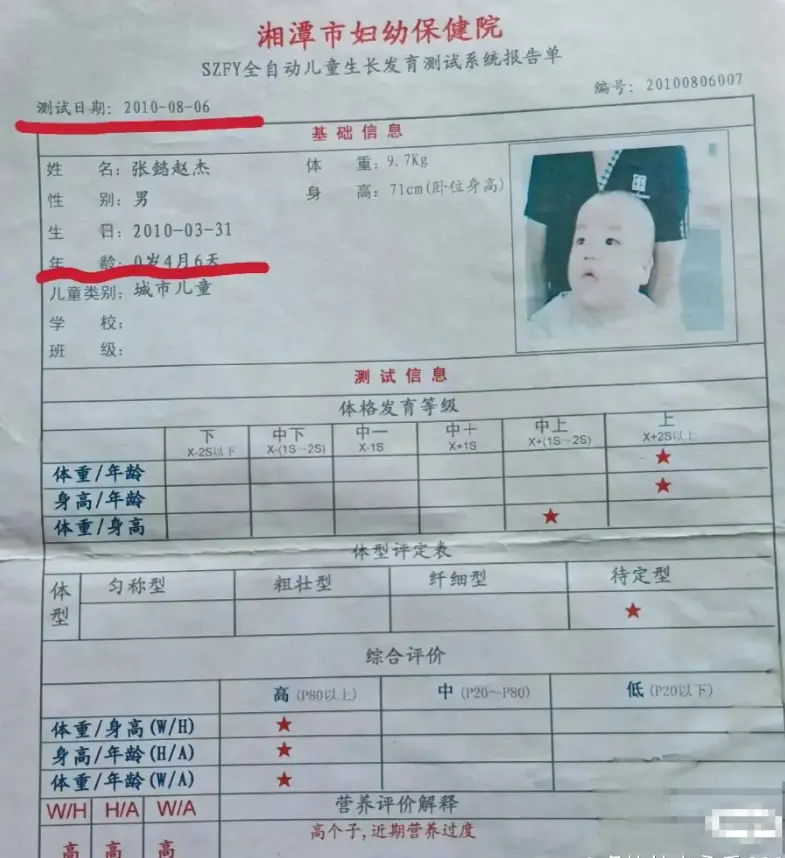 湘潭市妇幼保健院
SZFY全自动儿童生长发育测试系统报告单
编号: 20100806007
测试日期: 2010-08-06
基础信息
姓 名: 张懿赵杰 体 重: 9.7Kg
性 别: 男 身 高: 71cm(卧位身高)
生 日: 2010-03-31
年 龄: 0岁4月6天
儿童类别: 城市儿童
学 校:
班 级:
测试信息
体格发育等级
下 中下 中一 中十 中上 上
X-2S以下 X-(1S~2S) X-1S X+1S X+(1S~2S) X+2S以上
体重/年龄 ★
身高/年龄 ★
体重/身高 ★
体型评定表
体型 匀称型 粗壮型 纤细型 待定型
★
综合评价
高 (P80以上) 中 (P20~P80) 低 (P20以下)
体重/身高(W/H) ★
身高/年龄(H/A) ★
体重/年龄(W/A) ★
W/H H/A W/A 营养评价解释
高 高 高 高个子,近期营养过度